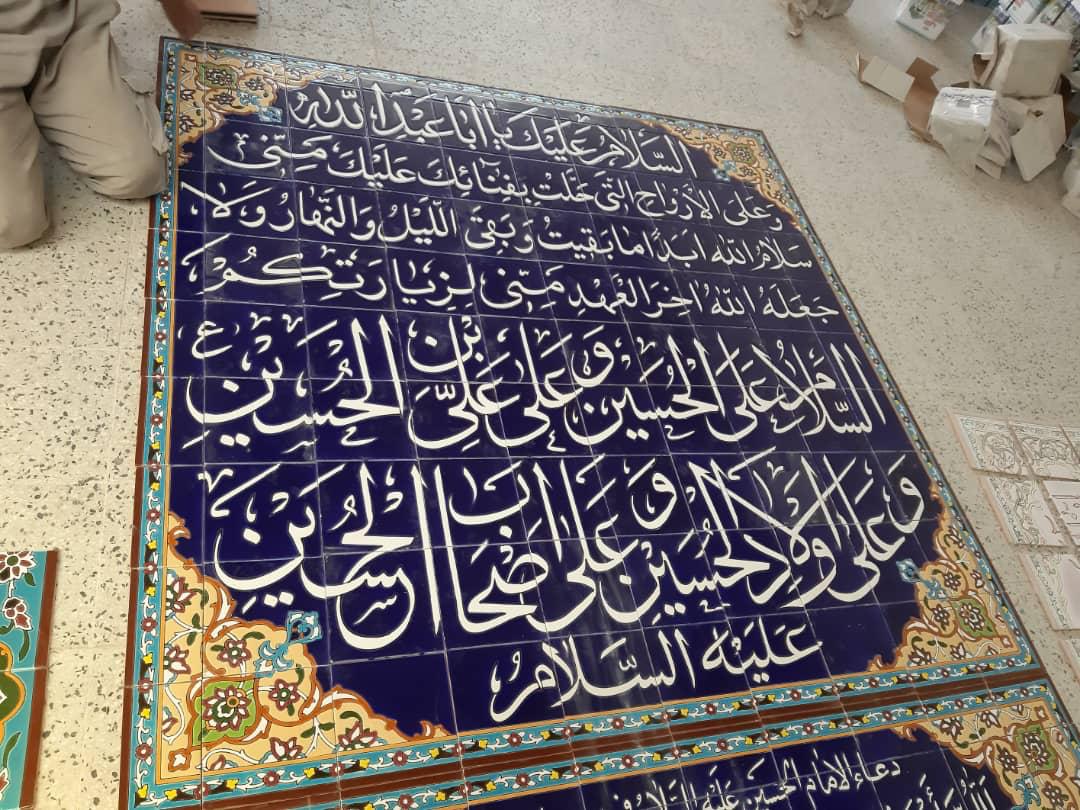 السَّلَامُ عَلَيْكَ يَا اَبَا عَبْدِ اللهِ
وَ عَلَى الْاَرْوَاحِ الَّتِي حَلَّتْ بِفِنَائِكَ عَلَيْكَ مِنِّي
سَلَامُ اللهِ اَبَدًا مَا بَقِيتُ وَ بَقِيَ اللَّيْلُ وَ النَّهَارُ وَ لَا
جَعَلَهُ اللهُ اخِرَ الْعَهْدِ مِنِّي لِزِيَارَتِكُمْ
السَّلَامُ عَلَى الْحُسَيْنِ وَ عَلَى عَلِيِّ بْنِ الْحُسَيْنِ ع
وَ عَلَى اَوْلَادِ الْحُسَيْنِ وَ عَلَى اَصْحَابِ الْحُسَيْنِ
عَلَيْهِ السَّلَامُ
دعاء الامام الحسين عليه السلام